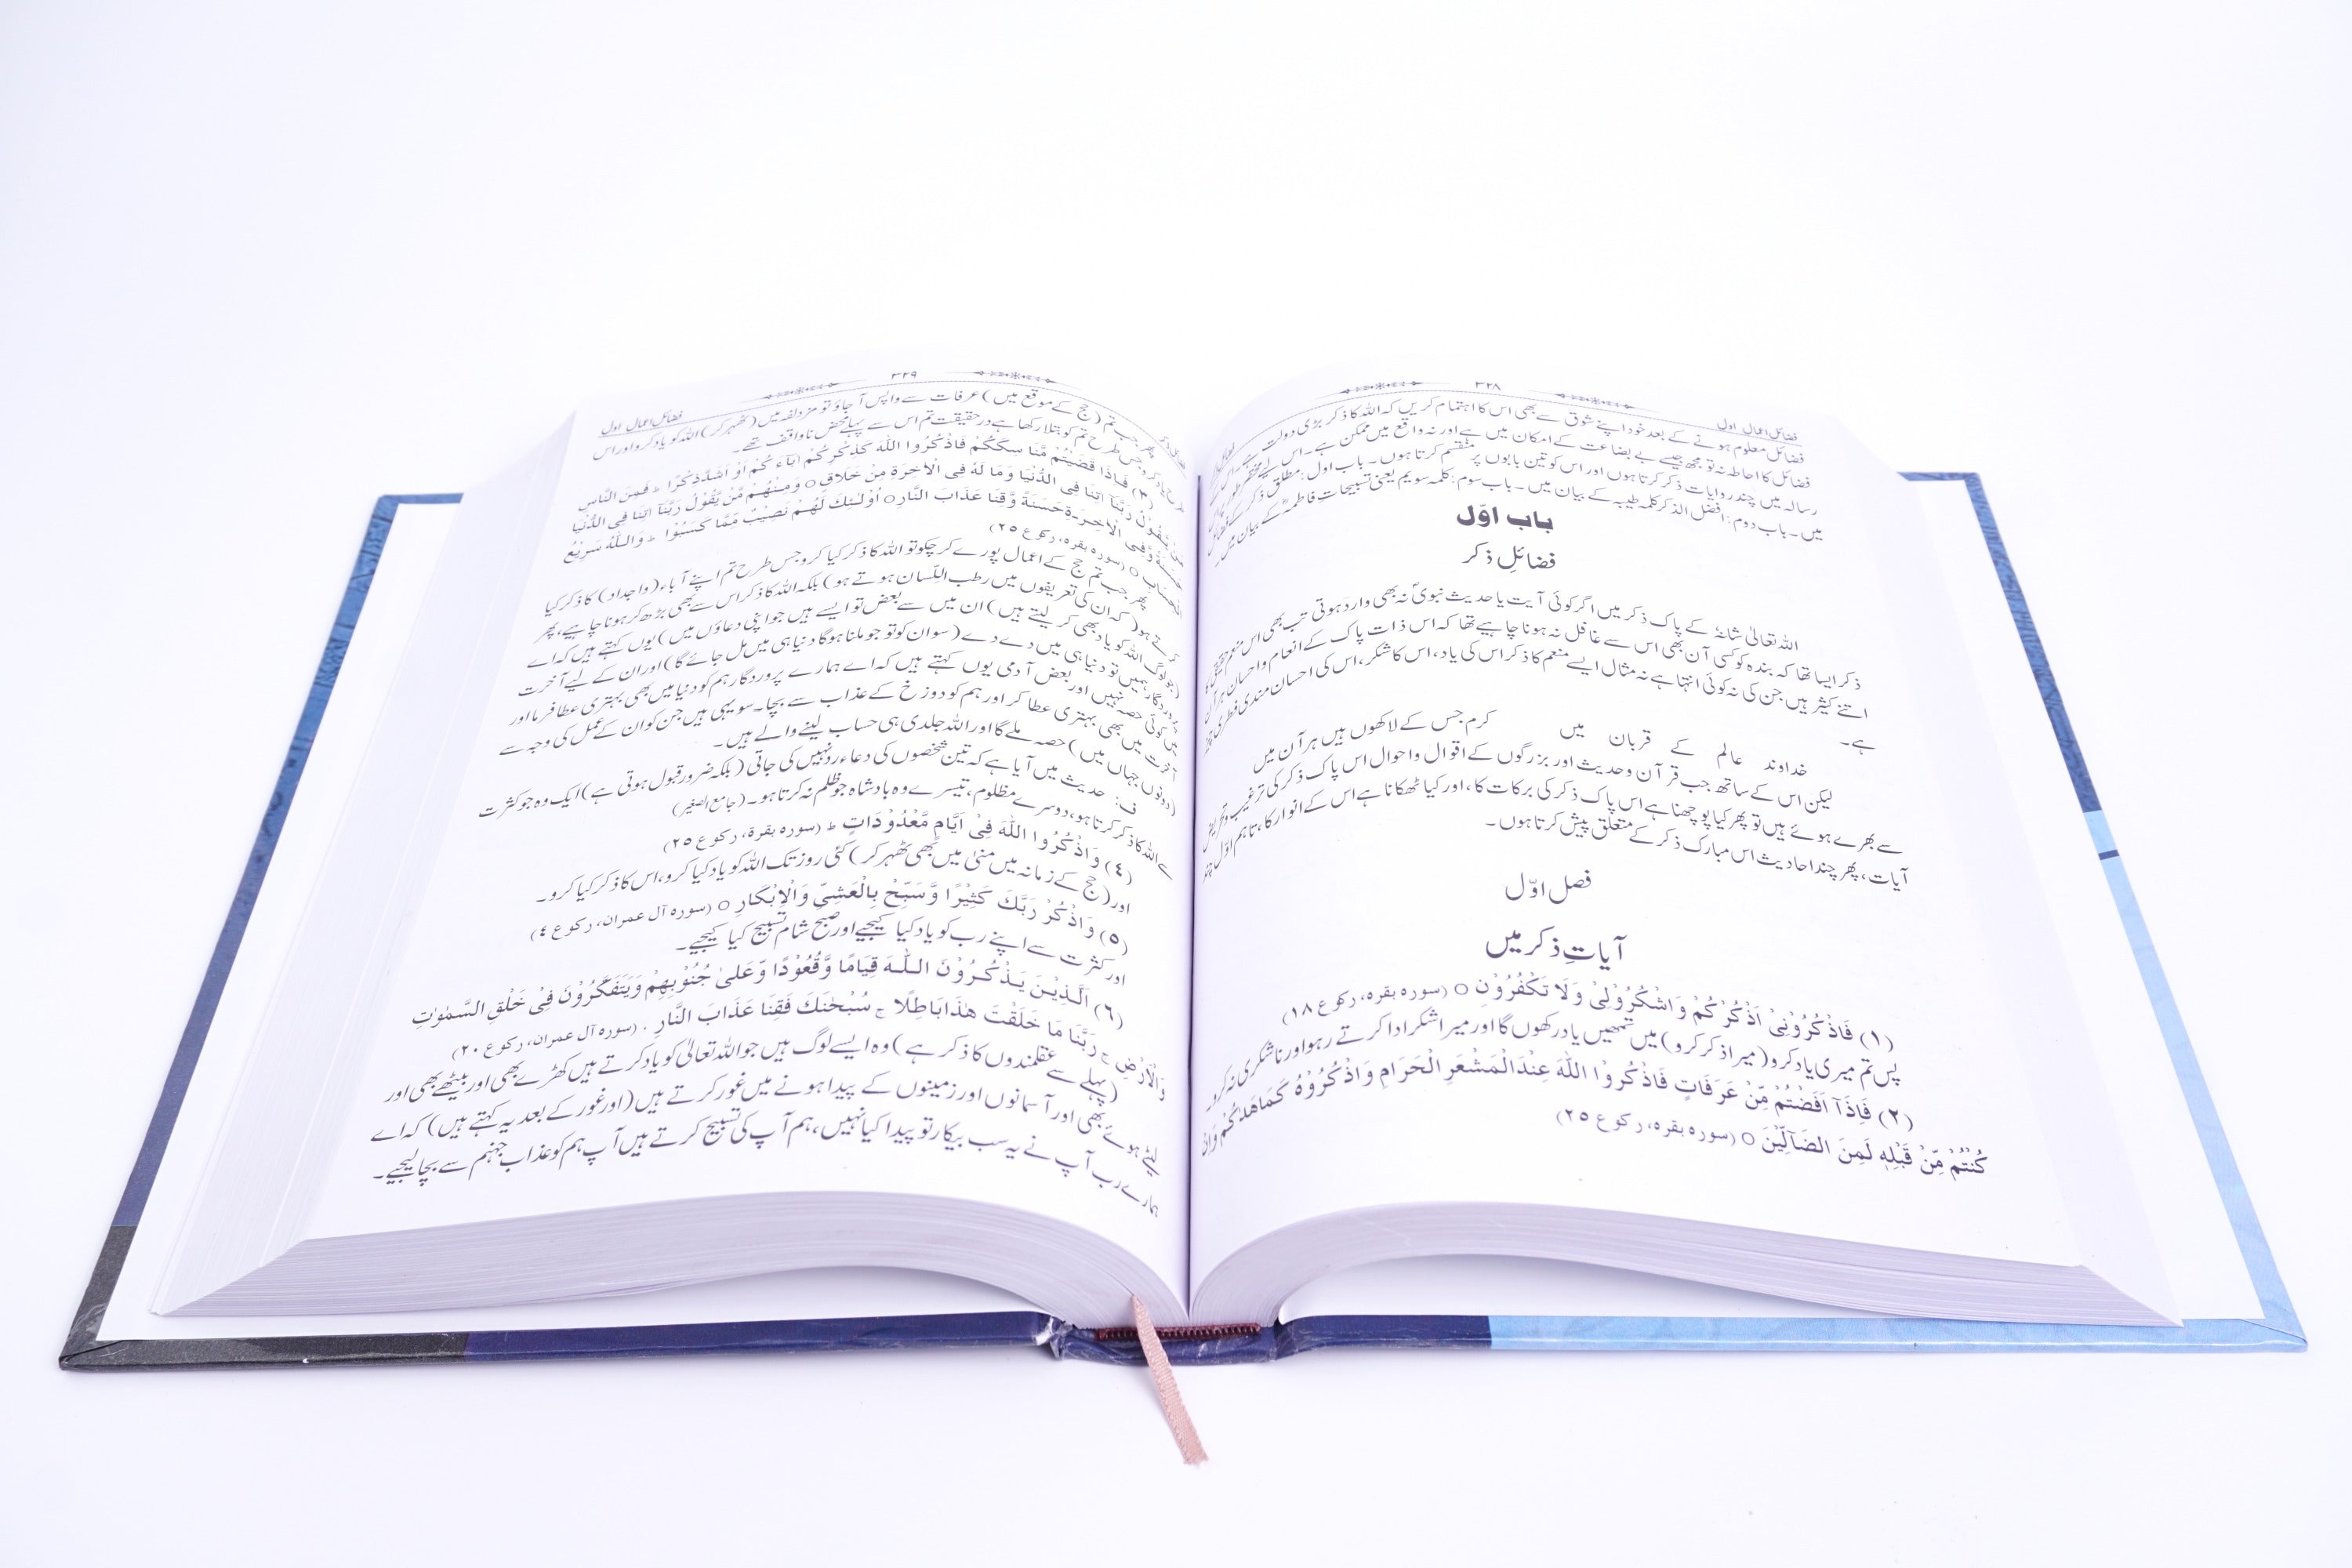 فضائل اعمال اول
۳۲۸
فضائل معلوم ہونے کے بعد خود اپنے شوق سے بھی اس کا اہتمام کریں کہ اللہ کا ذکر بڑی دولت ہے۔
فضائل کا احاطہ نہ تو مجھ جیسے بے بضاعت کے امکان میں ہے اور نہ واقع میں ممکن ہے۔ اس لیے مختصر طور پر اس
رسالہ میں چند روایات ذکر کرتا ہوں اور اس کو تین بابوں پر منقسم کرتا ہوں۔ باب اول: مطلق ذکر کے فضائل
میں۔ باب دوم: افضل الذکر کلمہ طیبہ کے بیان میں۔ باب سوم: کلمہ سویم یعنی تسبیحات فاطمہؓ کے بیان میں۔
باب اوّل
فضائلِ ذکر
اللہ تعالیٰ شانہٗ کے پاک ذکر میں اگر کوئی آیت یا حدیث نبویؐ نہ بھی وارد ہوتی تب بھی اس منعم حقیقی کا
ذکر ایسا تھا کہ بندہ کو کسی آن بھی اس سے غافل نہ ہونا چاہیے تھا کہ اس ذات پاک کے انعام واحسان ہر آن
اتنے کثیر ہیں جن کی نہ کوئی انتہا ہے نہ مثال ایسے منعم کا ذکر اس کی یاد، اس کا شکر، اس کی احسان مندی فطری چیز
ہے۔
خداوند عالم کے قربان میں کرم جس کے لاکھوں ہیں ہر آن میں
لیکن اس کے ساتھ جب قرآن وحدیث اور بزرگوں کے اقوال واحوال اس پاک ذکر کی ترغیب وتحریض
سے بھرے ہوئے ہیں تو پھر کیا پوچھنا ہے اس پاک ذکر کی برکات کا، اور کیا ٹھکانا ہے اس کے انوار کا، تاہم اوّل چند
آیات، پھر چند احادیث اس مبارک ذکر کے متعلق پیش کرتا ہوں۔
فصل اوّل
آیاتِ ذکر میں
(۱) فَاذْكُرُوْنِىْ اَذْكُرْكُمْ وَاشْكُرُوْلِىْ وَلَا تَكْفُرُوْنِ ○ (سورہ بقرہ، رکوع ۱۸)
پس تم میری یاد کرو (میرا ذکر کرو) میں تمہیں یاد رکھوں گا اور میرا شکر ادا کرتے رہو اور ناشکری نہ کرو۔
(۲) فَاِذَآ اَفَضْتُمْ مِّنْ عَرَفَاتٍ فَاذْكُرُوْا اللّٰهَ عِنْدَالْمَشْعَرِ الْحَرَامِ وَاذْكُرُوْهُ كَمَا هَدٰكُمْ وَاِنْ
كُنْتُمْ مِّنْ قَبْلِهٖ لَمِنَ الضَّآلِّيْنَ ○ (سورہ بقرہ، رکوع ۲۵)
فضائل اعمال اول
۳۲۹
پھر جب تم (حج کے موقع میں) عرفات سے واپس آ جاؤ تو مزدلفہ میں (ٹھہر کر) اللہ کو یاد کرو اور اس
طرح یاد کرو جس طرح تم کو بتلا رکھا ہے درحقیقت تم اس سے پہلے محض ناواقف تھے۔
(۳) فَاِذَا قَضَيْتُمْ مَّنَاسِكَكُمْ فَاذْكُرُوا اللّٰهَ كَذِكْرِكُمْ اٰبَآءَكُمْ اَوْ اَشَدَّ ذِكْرًا ط فَمِنَ النَّاسِ
مَنْ يَّقُوْلُ رَبَّنَآ اٰتِنَا فِى الدُّنْيَا وَمَا لَهٗ فِى الْاٰخِرَةِ مِنْ خَلَاقٍ ○ وَمِنْهُمْ مَّنْ يَّقُوْلُ رَبَّنَآ اٰتِنَا فِى الدُّنْيَا
حَسَنَةً وَّفِى الْاٰخِرَةِ حَسَنَةً وَّقِنَا عَذَابَ النَّارِ ○ اُوْلٰٓئِكَ لَهُمْ نَصِيْبٌ مِّمَّا كَسَبُوْا ط وَاللّٰهُ سَرِيْعُ
الْحِسَابِ ○ (سورہ بقرہ، رکوع ۲۵)
پھر جب تم حج کے اعمال پورے کر چکو تو اللہ کا ذکر کیا کرو جس طرح تم اپنے آباء (واجداد) کا ذکر کیا
کرتے ہو (کہ ان کی تعریفوں میں رطب اللّسان ہوتے ہو) بلکہ اللہ کا ذکر اس سے بھی بڑھ کر ہونا چاہیے، پھر
(جو لوگ اللہ کو یاد بھی کر لیتے ہیں) ان میں سے بعض تو ایسے ہیں جو اپنی دعاؤں میں) یوں کہتے ہیں کہ اے
پروردگار ہمیں تو دنیا ہی میں دے دے (سو ان کو تو جو ملنا ہوگا دنیا ہی میں مل جائے گا) اور ان کے لیے آخرت
میں کوئی حصہ نہیں اور بعض آدمی یوں کہتے ہیں کہ اے ہمارے پروردگار ہم کو دنیا میں بھی بہتری عطا فرما اور
آخرت میں بھی بہتری عطا کر اور ہم کو دوزخ کے عذاب سے بچا۔ سو یہی ہیں جن کو ان کے عمل کی وجہ سے
(دونوں جہاں میں) حصہ ملے گا اور اللہ جلدی ہی حساب لینے والے ہیں۔
ف: حدیث میں آیا ہے کہ تین شخصوں کی دعاء رد نہیں کی جاتی (بلکہ ضرور قبول ہوتی ہے) ایک وہ جو کثرت
سے اللہ کا ذکر کرتا ہو، دوسرے مظلوم، تیسرے وہ بادشاہ جو ظلم نہ کرتا ہو۔ (جامع الصغیر)
(٤) وَاذْكُرُوا اللّٰهَ فِىْٓ اَيَّامٍ مَّعْدُوْدَاتٍ ط (سورہ بقرۃ، رکوع ۲۵)
اور (حج کے زمانہ میں منیٰ میں بھی ٹھہر کر) کئی روز تک اللہ کو یاد کیا کرو، اس کا ذکر کیا کرو۔
(۵) وَاذْكُرْ رَبَّكَ كَثِيْرًا وَّسَبِّحْ بِالْعَشِىِّ وَالْاِبْكَارِ ○ (سورہ آل عمران، رکوع ٤)
اور کثرت سے اپنے رب کو یاد کیا کیجیے اور صبح شام تسبیح کیا کیجیے۔
(٦) اَلَّذِيْنَ يَذْكُرُوْنَ اللّٰهَ قِيَامًا وَّقُعُوْدًا وَّعَلٰى جُنُوْبِهِمْ وَيَتَفَكَّرُوْنَ فِىْ خَلْقِ السَّمٰوٰتِ
وَالْاَرْضِ ج رَبَّنَا مَا خَلَقْتَ هٰذَا بَاطِلًا ج سُبْحٰنَكَ فَقِنَا عَذَابَ النَّارِ ۰ (سورہ آل عمران، رکوع ۲۰)
(پہلے سے عقلمندوں کا ذکر ہے) وہ ایسے لوگ ہیں جو اللہ تعالیٰ کو یاد کرتے ہیں کھڑے بھی اور بیٹھے بھی اور
لیٹے ہوئے بھی اور آسمانوں اور زمینوں کے پیدا ہونے میں غور کرتے ہیں (اور غور کے بعد یہ کہتے ہیں) کہ اے
ہمارے رب آپ نے یہ سب بیکار تو پیدا کیا نہیں، ہم آپ کی تسبیح کرتے ہیں آپ ہم کو عذاب جہنم سے بچا لیجیے۔